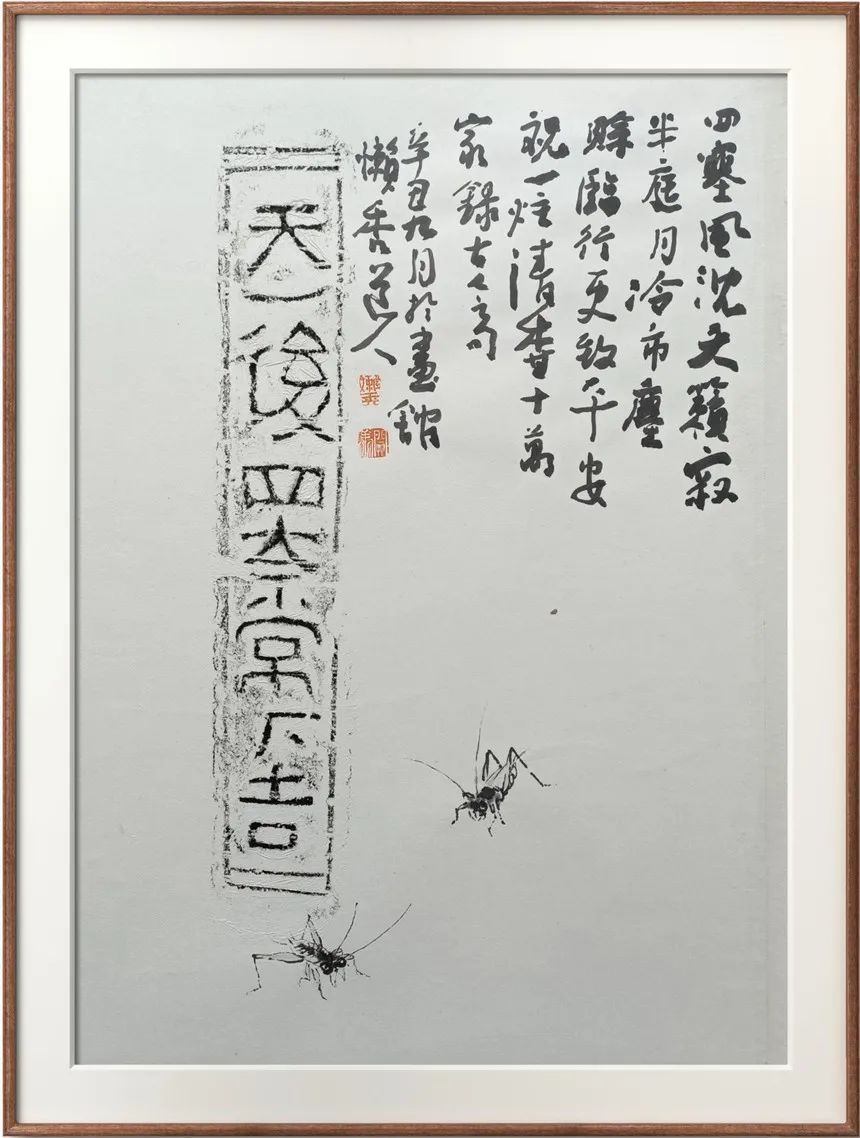 四塞風沈天籟寂
半庭月冷市塵
賒臨行更致平安
祝一炷清香十萬
家錄古人句
辛丑九月於畫館
懶香道人
天後四常吉